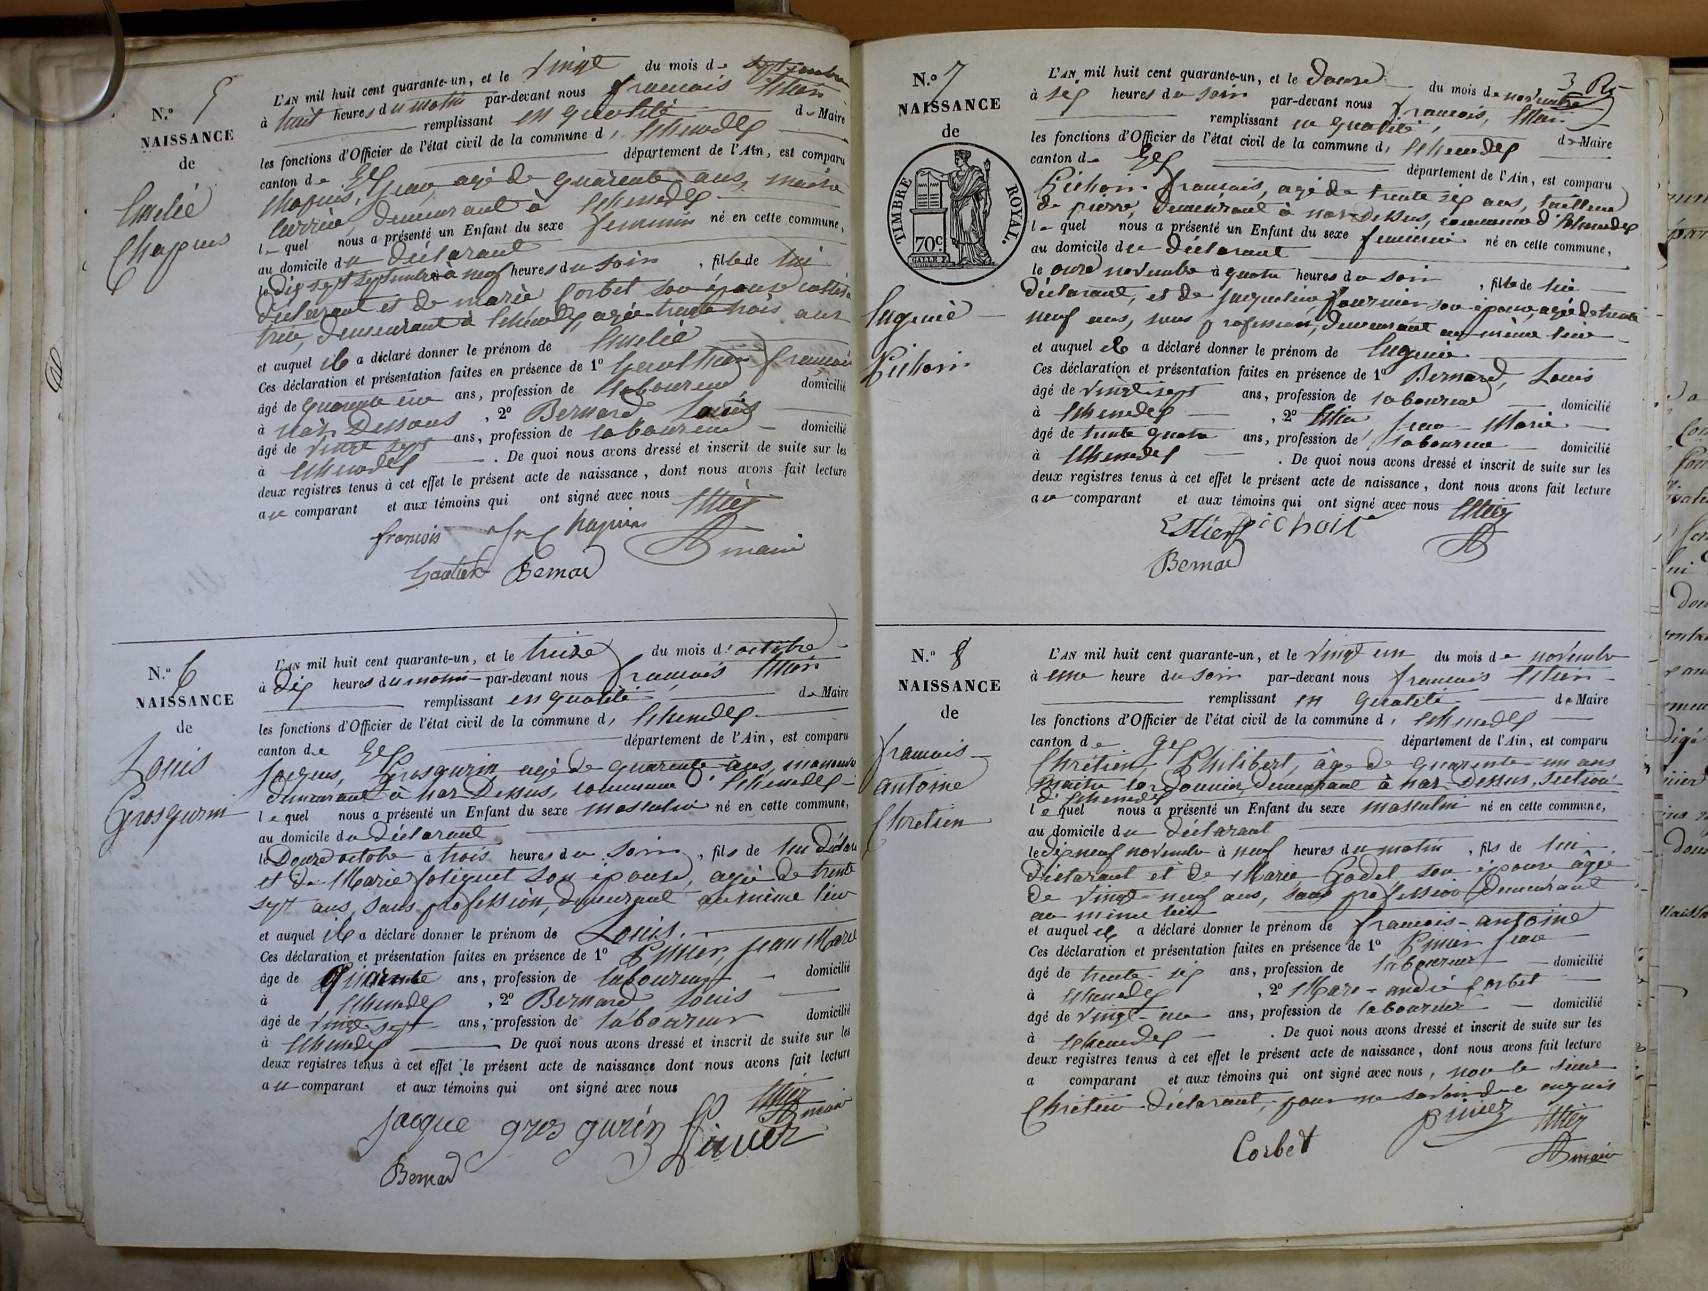 N.º 5
NAISSANCE
de
Amélie
Chapuis
L'AN mil huit cent quarante-un, et le vingt du mois de septembre
à huit heures du matin par-devant nous françois
remplissant en qualité de Maire
les fonctions d'Officier de l'état civil de la commune d'
canton de Gex département de l'Ain, est comparu
Chapuis, Jean, agé de quarante ans,
demeurant à
le quel nous a présenté un Enfant du sexe feminin né en cette commune,
au domicile du déclarant
le dix sept septembre à neuf heures du soir, fille de lui
déclarant et de marie Corbet son épouse
demeurant à agée trente trois ans
et auquel il a déclaré donner le prénom de Amélie
Ces déclaration et présentation faites en présence de 1º françois
âgé de quarante un ans, profession de laboureur domicilié
à naz Dessous, 2º Bernard Louis
âgé de vingt sept ans, profession de laboureur domicilié
à . De quoi nous avons dressé et inscrit de suite sur les
deux registres tenus à cet effet le présent acte de naissance, dont nous avons fait lecture
au comparant et aux témoins qui ont signé avec nous
françois Chapuis
maire
Bernard
N.º 6
NAISSANCE
de
Louis
Grosgurin
L'AN mil huit cent quarante-un, et le treize du mois d'octobre
à dix heures du matin par-devant nous françois
remplissant en qualité de Maire
les fonctions d'Officier de l'état civil de la commune d'
canton de Gex département de l'Ain, est comparu
Jacques, Grosgurin agé de quarante ans,
demeurant à naz Dessus, commune d'
le quel nous a présenté un Enfant du sexe masculin né en cette commune,
au domicile du déclarant
le Douze octobre à trois heures du soir, fils de lui déclara
et de Marie son épouse, agée de trente
sept ans, sans profession, demeurant au même lieu
et auquel il a déclaré donner le prénom de Louis.
Ces déclaration et présentation faites en présence de 1º jean Marie
âgé de quarante ans, profession de laboureur domicilié
à , 2º Bernard Louis
âgé de vingt sept ans, profession de laboureur domicilié
à . De quoi nous avons dressé et inscrit de suite sur les
deux registres tenus à cet effet le présent acte de naissance dont nous avons fait lecture
au comparant et aux témoins qui ont signé avec nous
maire
jacque gros gurin
Bernard
N.º 7
NAISSANCE
de
TIMBRE ROYAL.
70c
Eugenie
Pichoin
L'AN mil huit cent quarante-un, et le douze du mois de novembre
à six heures du soir par-devant nous françois,
remplissant en qualité, de Maire
les fonctions d'Officier de l'état civil de la commune d'
canton de Gex département de l'Ain, est comparu
françois, agé de trente six ans, tailleur
de pierre, demeurant à naz-Dessus, commune d'
le quel nous a présenté un Enfant du sexe feminin né en cette commune,
au domicile du déclarant
le onze novembre à quatre heures du soir, fille de lui
déclarant, et de jacqueline fournier, son épouse, agé de trente
neuf ans, sans profession, demeurant au même lieu
et auquel il a déclaré donner le prénom de Eugenie
Ces déclaration et présentation faites en présence de 1º Bernard, Louis
âgé de vingt sept ans, profession de laboureur domicilié
à , 2º jean-Marie
âgé de trente quatre ans, profession de laboureur domicilié
à . De quoi nous avons dressé et inscrit de suite sur les
deux registres tenus à cet effet le présent acte de naissance, dont nous avons fait lecture
au comparant et aux témoins qui ont signé avec nous
Bernard
N.º 8
NAISSANCE
de
francois
antoine
Chretien
L'AN mil huit cent quarante-un, et le vingt un du mois de novembre
à une heure du soir par-devant nous francois
remplissant en qualité de Maire
les fonctions d'Officier de l'état civil de la commune d'
canton de gex département de l'Ain, est comparu
Chrétien Philibert, âgé de quarante-un ans
maitre cordonnier, demeurant à naz-Dessus, section
le quel nous a présenté un Enfant du sexe masculin né en cette commune,
au domicile du déclarant
le dix neuf novembre à neuf heures du matin, fils de lui
déclarant et de Marie Godet son épouse âgée
de vingt-neuf ans, sans profession, demeurant
au même lieu
et auquel il a déclaré donner le prénom de francois-antoine
Ces déclaration et présentation faites en présence de 1º jean
âgé de trente six ans, profession de laboureur domicilié
à , 2º Marc-andré Corbet
âgé de vingt-un ans, profession de laboureur domicilié
à . De quoi nous avons dressé et inscrit de suite sur les
deux registres tenus à cet effet le présent acte de naissance, dont nous avons fait lecture
a comparant et aux témoins qui ont signé avec nous, non le sieur
Chretien déclarant, pour ne savoir de ce enquis
Corbet
maire